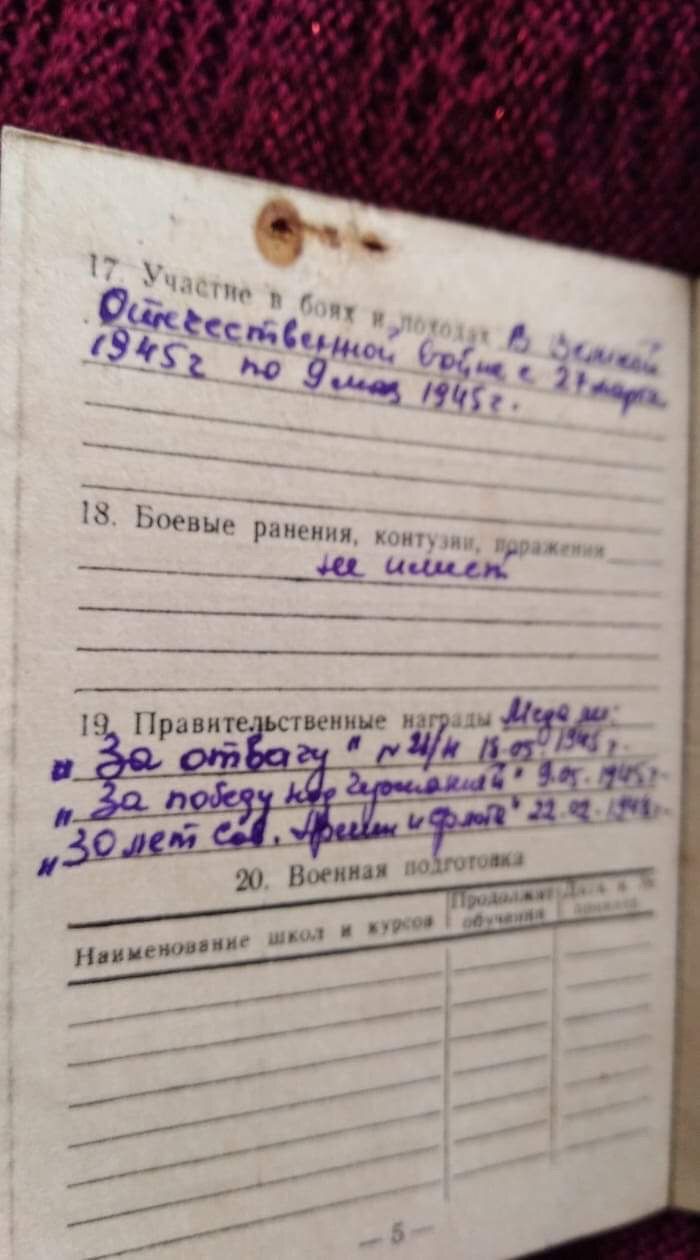 17. Участие в боях и походах В Великой
Отечественной войне с 27 марта
1945г по 9 мая 1945г.
18. Боевые ранения, контузии, поражения
не имеет
19. Правительственные награды Медали:
"За отвагу" 18.05.1945г.
"За победу над Германией" 9.05.1945г.
"30 лет Сов. Армии и флота" 22.02.1948г.
20. Военная подготовка
Наименование школ и курсов Продолжит. обучения Дата и №
— 5 —